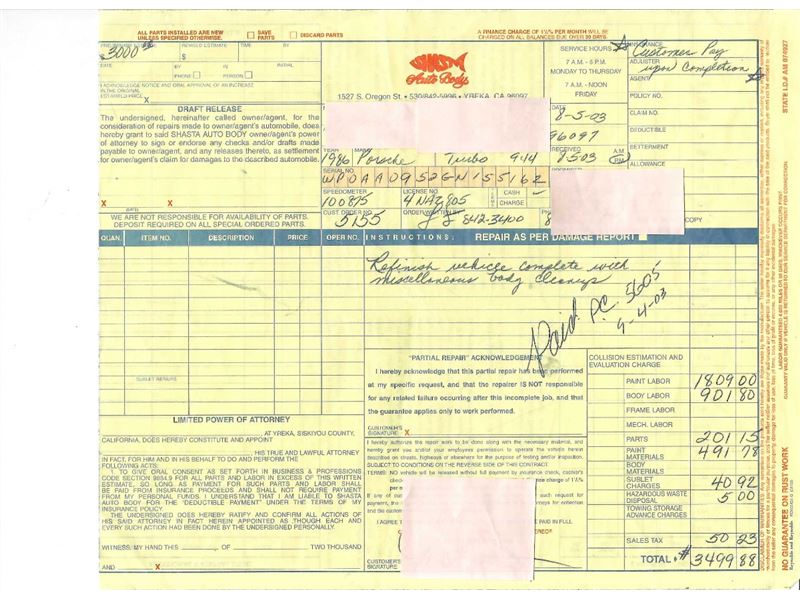 ALL PARTS INSTALLED ARE NEW
UNLESS SPECIFIED OTHERWISE.
SAVE PARTS
DISCARD PARTS
A FINANCE CHARGE OF 1½% PER MONTH WILL BE
CHARGED ON ALL BALANCES DUE OVER 30 DAYS
3000
REVISED ESTIMATE
TIME
BY
$
BY
INITIAL
PHONE
IN PERSON
I ACKNOWLEDGE NOTICE AND ORAL APPROVAL OF AN INCREASE
IN THE ORIGINAL
ESTIMATED PRICE
X
SHASTA
Auto Body
1527 S. Oregon St. • 530/842-5996 • YREKA, CA 96097
SERVICE HOURS
7 A.M. - 6 P.M.
MONDAY TO THURSDAY
7 A.M. - NOON
FRIDAY
INSURANCE
Customer Pay
ADJUSTER
upon Completion
AGENT
POLICY NO.
CLAIM NO.
DEDUCTIBLE
BETTERMENT
ALLOWANCE
DRAFT RELEASE
The undersigned, hereinafter called owner/agent, for the
consideration of repairs made to owner/agent's automobile, does
hereby grant to said SHASTA AUTO BODY owner/agent's power
of attorney to sign or endorse any checks and/or drafts made
payable to owner/agent, and any releases thereto, as settlement
for owner/agent's claim for damages to the described automobile.
X
X
DATE
8-5-03
96097
YEAR
MAKE
1986 Porsche Turbo 944
8503
A.M.
P.M.
SERIAL NO.
WP0AA0952GN155162
SPEEDOMETER
100875
LICENSE NO.
4NAZ805
CASH
CHARGE
CUST. ORDER NO.
5155
ORDER WRITTEN BY
842-3400
COPY
WE ARE NOT RESPONSIBLE FOR AVAILABILITY OF PARTS.
DEPOSIT REQUIRED ON ALL SPECIAL ORDERED PARTS.
QUAN.
ITEM NO.
DESCRIPTION
PRICE
OPER NO.
INSTRUCTIONS:
REPAIR AS PER DAMAGE REPORT
Refinish vehicle complete with
miscellaneous body cleanup
Paid PC 5605
9-4-03
SUBLET REPAIRS
"PARTIAL REPAIR" ACKNOWLEDGEMENT
I hereby acknowledge that this partial repair has been performed
at my specific request, and that the repairer IS NOT responsible
for any related failure occurring after this incomplete job, and that
the guarantee applies only to work performed.
CUSTOMER'S
SIGNATURE X
COLLISION ESTIMATION AND
EVALUATION CHARGE
PAINT LABOR 1809 00
BODY LABOR 901 80
FRAME LABOR
MECH. LABOR
PARTS 201 15
PAINT MATERIALS 491 78
BODY MATERIALS
SUBLET CHARGES 40 92
HAZARDOUS WASTE DISPOSAL 5 00
TOWING STORAGE
ADVANCE CHARGES
SALES TAX 50 23
TOTAL $3499 88
LIMITED POWER OF ATTORNEY
AT YREKA, SISKIYOU COUNTY,
CALIFORNIA, DOES HEREBY CONSTITUTE AND APPOINT
HIS TRUE AND LAWFUL ATTORNEY
IN FACT, FOR HIM AND IN HIS BEHALF TO DO AND PERFORM THE
FOLLOWING ACTS:
1. TO GIVE ORAL CONSENT AS SET FORTH IN BUSINESS & PROFESSIONS
CODE SECTION 9884.9 FOR ALL PARTS AND LABOR IN EXCESS OF THIS WRITTEN
ESTIMATE, SO LONG AS PAYMENT FOR SUCH PARTS AND LABOR SHALL
BE PAID FROM INSURANCE PROCEEDS AND SHALL NOT REQUIRE PAYMENT
FROM MY PERSONAL FUNDS. I UNDERSTAND THAT I AM LIABLE TO SHASTA
AUTO BODY FOR THE "DEDUCTIBLE PAYMENT" UNDER THE TERMS OF MY
INSURANCE POLICY.
THE UNDERSIGNED DOES HEREBY RATIFY AND CONFIRM ALL ACTIONS OF
HIS SAID ATTORNEY IN FACT HEREIN APPOINTED AS THOUGH EACH AND
EVERY SUCH ACTION HAD BEEN DONE BY THE UNDERSIGNED PERSONALLY.
WITNESS: MY HAND THIS
OF
TWO THOUSAND
AND
X
I hereby authorize the repair work to be done along with the necessary material, and
hereby grant you and/or your employees permission to operate the vehicle herein
described on streets, highways or elsewhere for the purpose of testing and/or inspection.
SUBJECT TO CONDITIONS ON THE REVERSE SIDE OF THIS CONTRACT.
TERMS: NO vehicle will be released without full payment by insurance check, cashier's
I AGREE
CUSTOMER'S
SIGNATURE
STATE I.D.# AM 074927
NO GUARANTEE ON RUST WORK